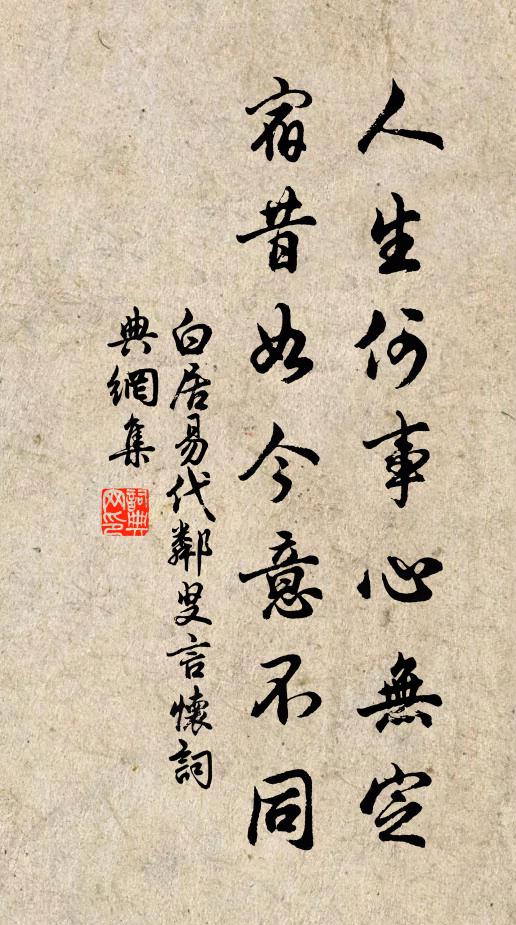 人生何事心無定
宿昔如今意不同
白居易代鄰叟言懷詞
典網集
詞典网印